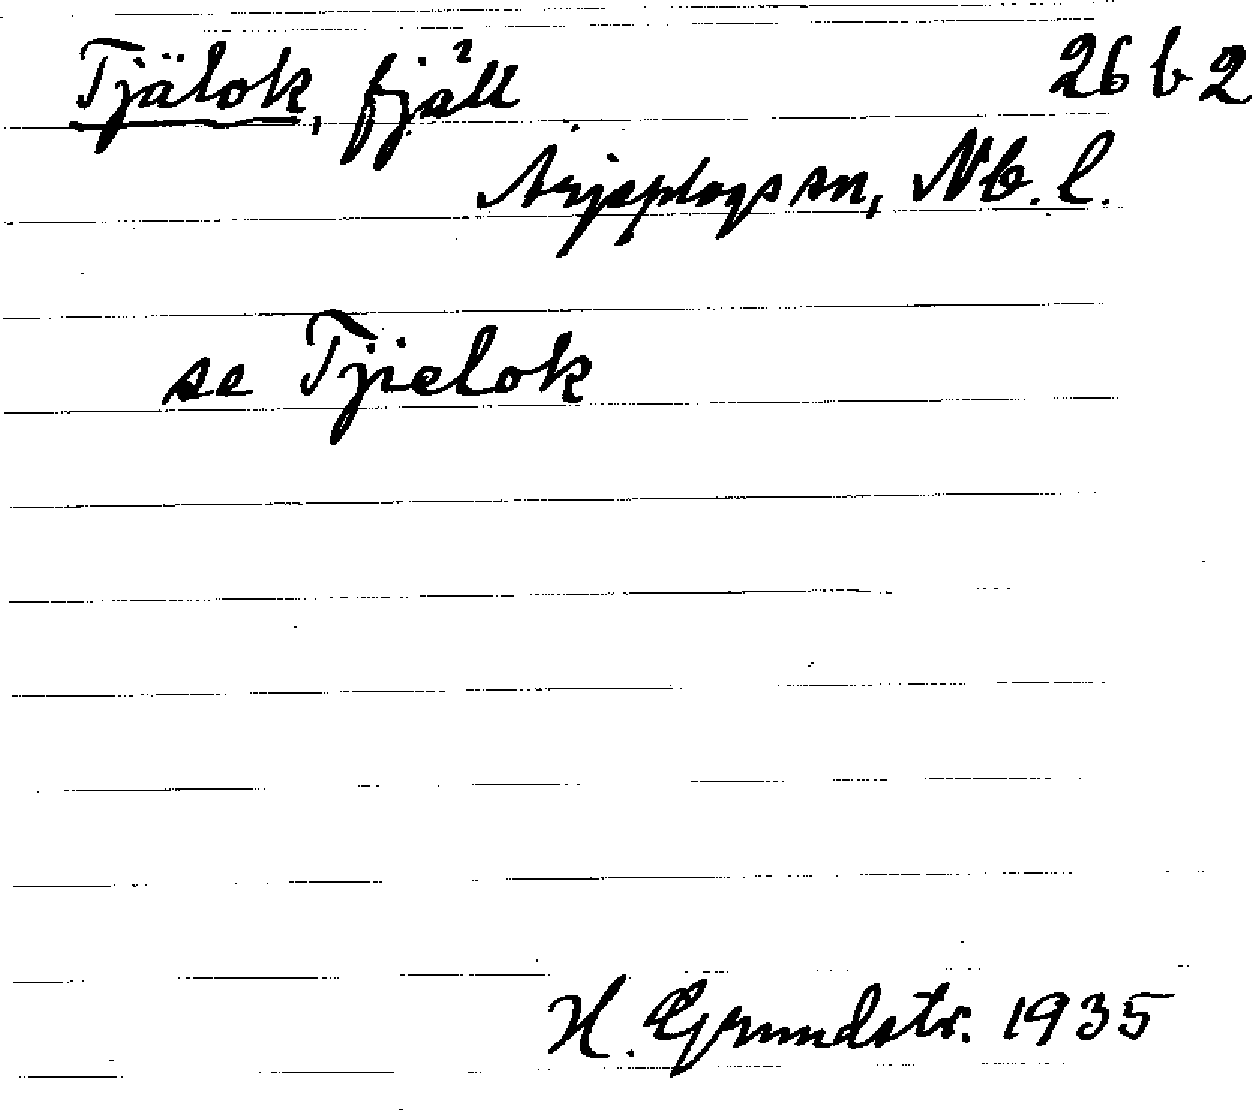 Tjälok, fjäll 26 b 2
Arjeplogs sn, Nb. l.
se Tjielok
H. Grundstr. 1935